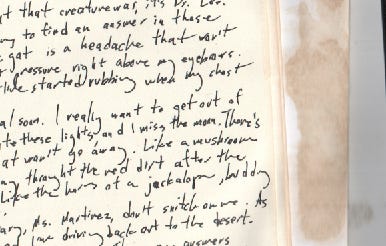 t that creature was, it's Ms. Lee.
ng to find an answer in these
gat is a headache that won't
r pressure right above my eyebrows.
like started rubbing when my chest
al soon. I really want to get out of
te these lights and I miss the moon. There's
at won't go away. Like a mushroom
ng throught the red dirt after the
Like the horns of a jackalope, budding
ary, Ms. Martinez, don't switch on me. As
driving back out to the desert.
answers